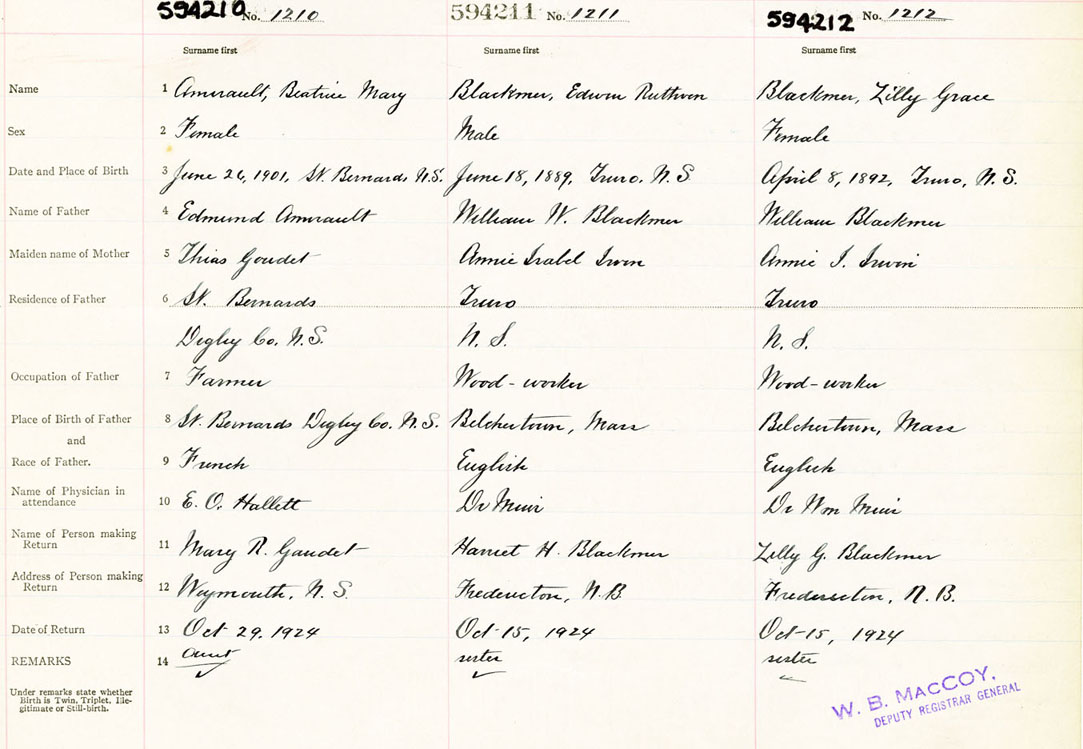 594210 No. 1210 594211 No. 1211 594212 No. 1212
Surname first Surname first Surname first
Name 1 Amirault, Beatrice Mary Blackmer, Edwin Ruthven Blackmer, Lilly Grace
Sex 2 Female Male Female
Date and Place of Birth 3 June 26, 1901, St. Bernards N.S. June 18, 1889, Truro, N.S April 8, 1892, Truro, N.S.
Name of Father 4 Edmund Amirault William W. Blackmer William Blackmer
Maiden name of Mother 5 Goudet Annie Isabel Irwin Annie I. Irwin
Residence of Father 6 St. Bernards Truro Truro
Digby Co. N.S. N. S. N. S.
Occupation of Father 7 Farmer Wood-worker Wood-worker
Place of Birth of Father 8 St. Bernards Digby Co. N.S. Belchertown, Mass Belchertown, Mass
and
Race of Father. 9 French English English
Name of Physician in
attendance 10 E. O. Hallett Dr Muir Dr Wm Muir
Name of Person making
Return 11 Mary R. Gaudet Harriet H. Blackmer Lilly G. Blackmer
Address of Person making
Return 12 Weymouth, N. S. Fredericton, N.B. Fredericton, N.B.
Date of Return 13 Oct 29, 1924 Oct-15, 1924 Oct-15, 1924
REMARKS 14 aunt sister sister
Under remarks state whether
Birth is Twin, Triplet, Ille-
gitimate or Still-birth.
W. B. MACCOY,
DEPUTY REGISTRAR GENERAL